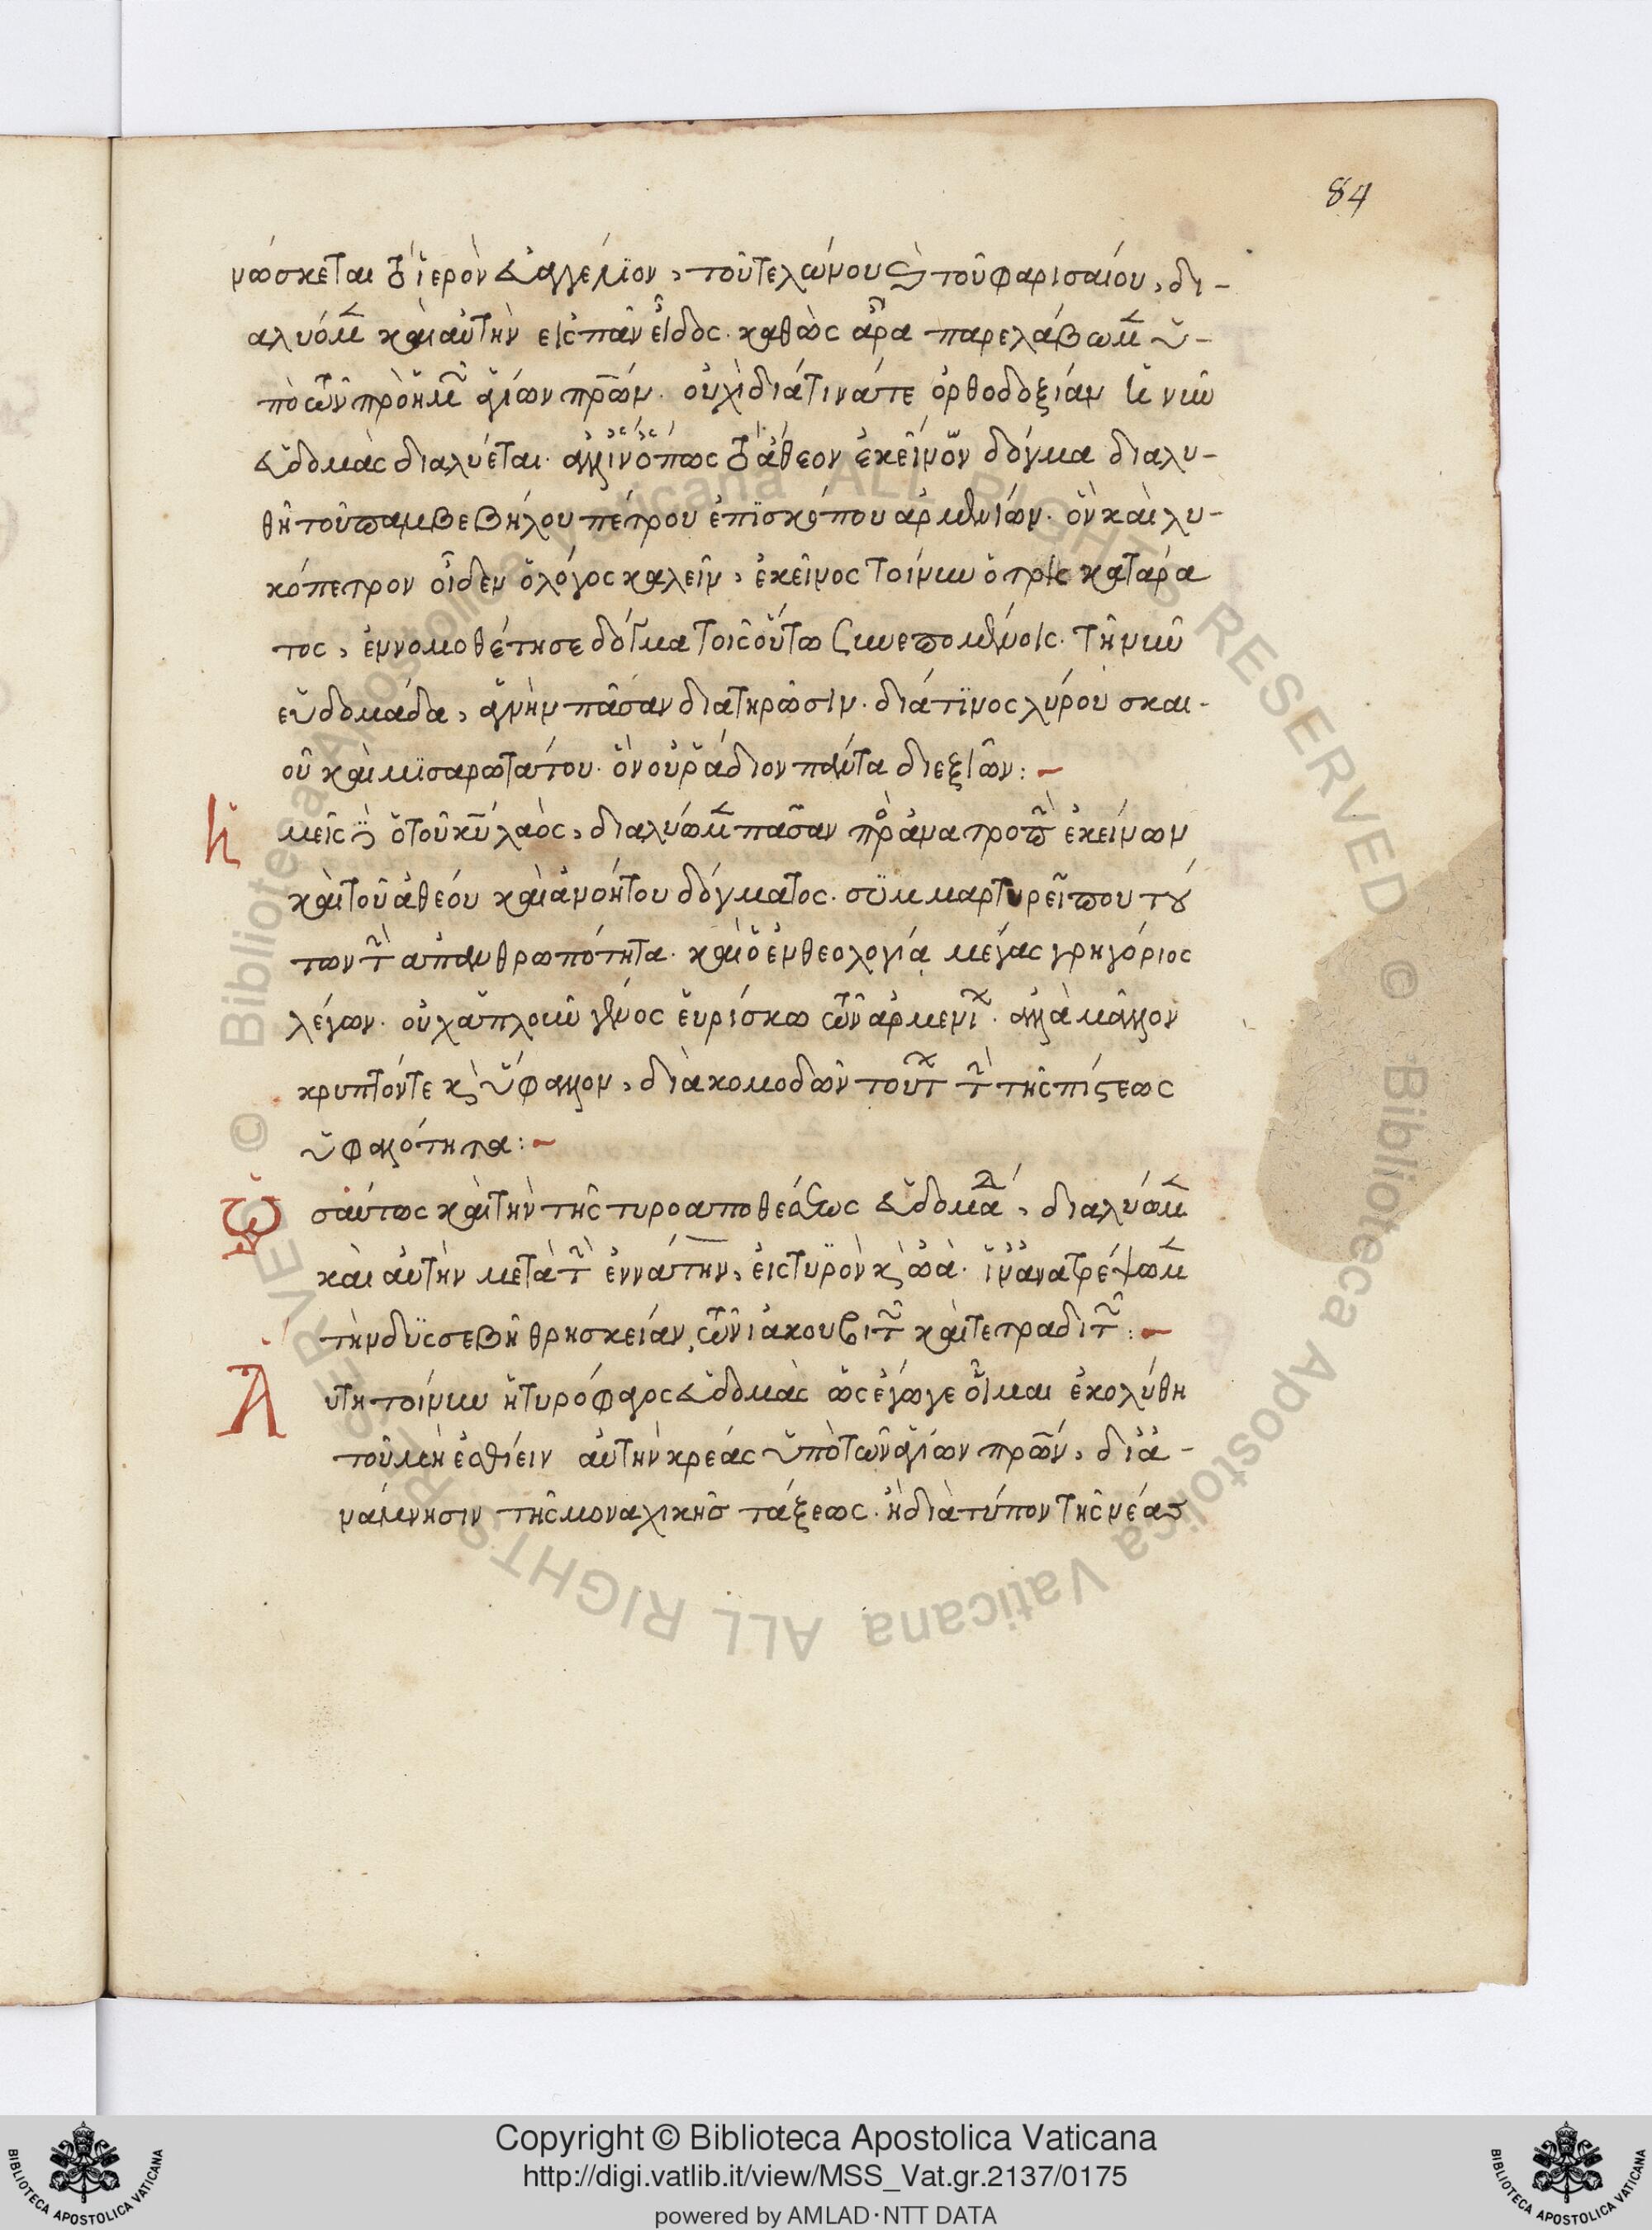 84
νώσκεται τὸ ἱερὸν εὐαγγέλιον, τοῦ τελώνου καὶ τοῦ φαρισαίου, δι-
αλύομεν καὶ αὐτὴν εἰς πᾶν εἶδος· καθὼς ἄρα παρελάβωμεν ὑ-
πὸ τῶν πρὸ ἡμῶν ἁγίων πρων· οὐχὶ διά τινά τε ὀρθοδοξίαν ἡ νιω
εὐδομὰς διαλύεται· ἀλλ' ἵν' ὅπως τὸ ἄθεον ἐκεῖνον δόγμα διαλυ-
θῆ τοῦ παμβεβήλου πέτρου ἐπϊσκόπου ἀρμενίων· ὃν καὶ λυ-
κόπετρον οἶδεν ὁ λόγος καλεῖν, ἐκεῖνος τοίνυν ὁ τρὶς κατάρα
τος, ἐννομοθέτησε δόγμα τοῖς οὕτω συνεπομένοις· τὴν
εὐδομάδα, πᾶσαν διατηρῶσιν· διά τϊνος λύρου σκαι-
οῦ καὶ μϊσαρωτάτου· ὃν οὐ ῥάδιον πάντα διεξιῶν:
Ημεῖς δὲ ὁ τοῦ κυ λαὸς, διαλύωμεν πᾶσαν πρὸς ἀνατροπὴν ἐκείνων
καὶ τοῦ ἀθέου καὶ ἀνοήτου δόγματος· σϋμμαρτυρεῖ που τού
των τὴν ἀπανθρωπότητα· καὶ ὁ ἐν θεολογία μέγας γρηγόριος
λέγων· οὐχ ἁπλοῦν γένος εὑρίσκω τῶν ἀρμενίων· ἀλλὰ μᾶλλον
κρυπτόν τε καὶ ὕφαλλον, διακομοδῶν τούτων τὴν τῆς πίστεως
ὑφαλότητα:
Ωσαύτως καὶ τὴν τῆς τυροαποθέσεως εὐδομάδα, διαλύωμεν
καὶ αὐτὴν μετὰ τὴν ἐννάτην, εἰς τῦρὸν καὶ ὠά· ἵν' ἀνατρέψωμεν
τὴν δϋσσεβῆ θρησκείαν, τῶν ἰακουβιτῶν καὶ τετραδιτῶν:
Αὕτη τοίνυν ἡ τυρόφαγος εὐδομὰς ὡς ἐγώγε οἶμαι ἐκολύθη
τοῦ μὴ ἐσθίειν αὐτὴν κρέας ὑπὸ τῶν ἁγίων πρων, διὰ ἀ-
νάμνησιν τῆς μοναχικῆς τάξεως· ἢ διὰ τύπον τῆς νέας
Copyright © Biblioteca Apostolica Vaticana
http://digi.vatlib.it/view/MSS_Vat.gr.2137/0175
powered by AMLAD·NTT DATA
BIBLIOTECA APOSTOLICA VATICANA
BIBLIOTECA APOSTOLICA VATICANA
© Biblioteca Apostolica Vaticana ALL RIGHTS RESERVED © Biblioteca Apostolica Vaticana ALL RIGHTS RESERVED